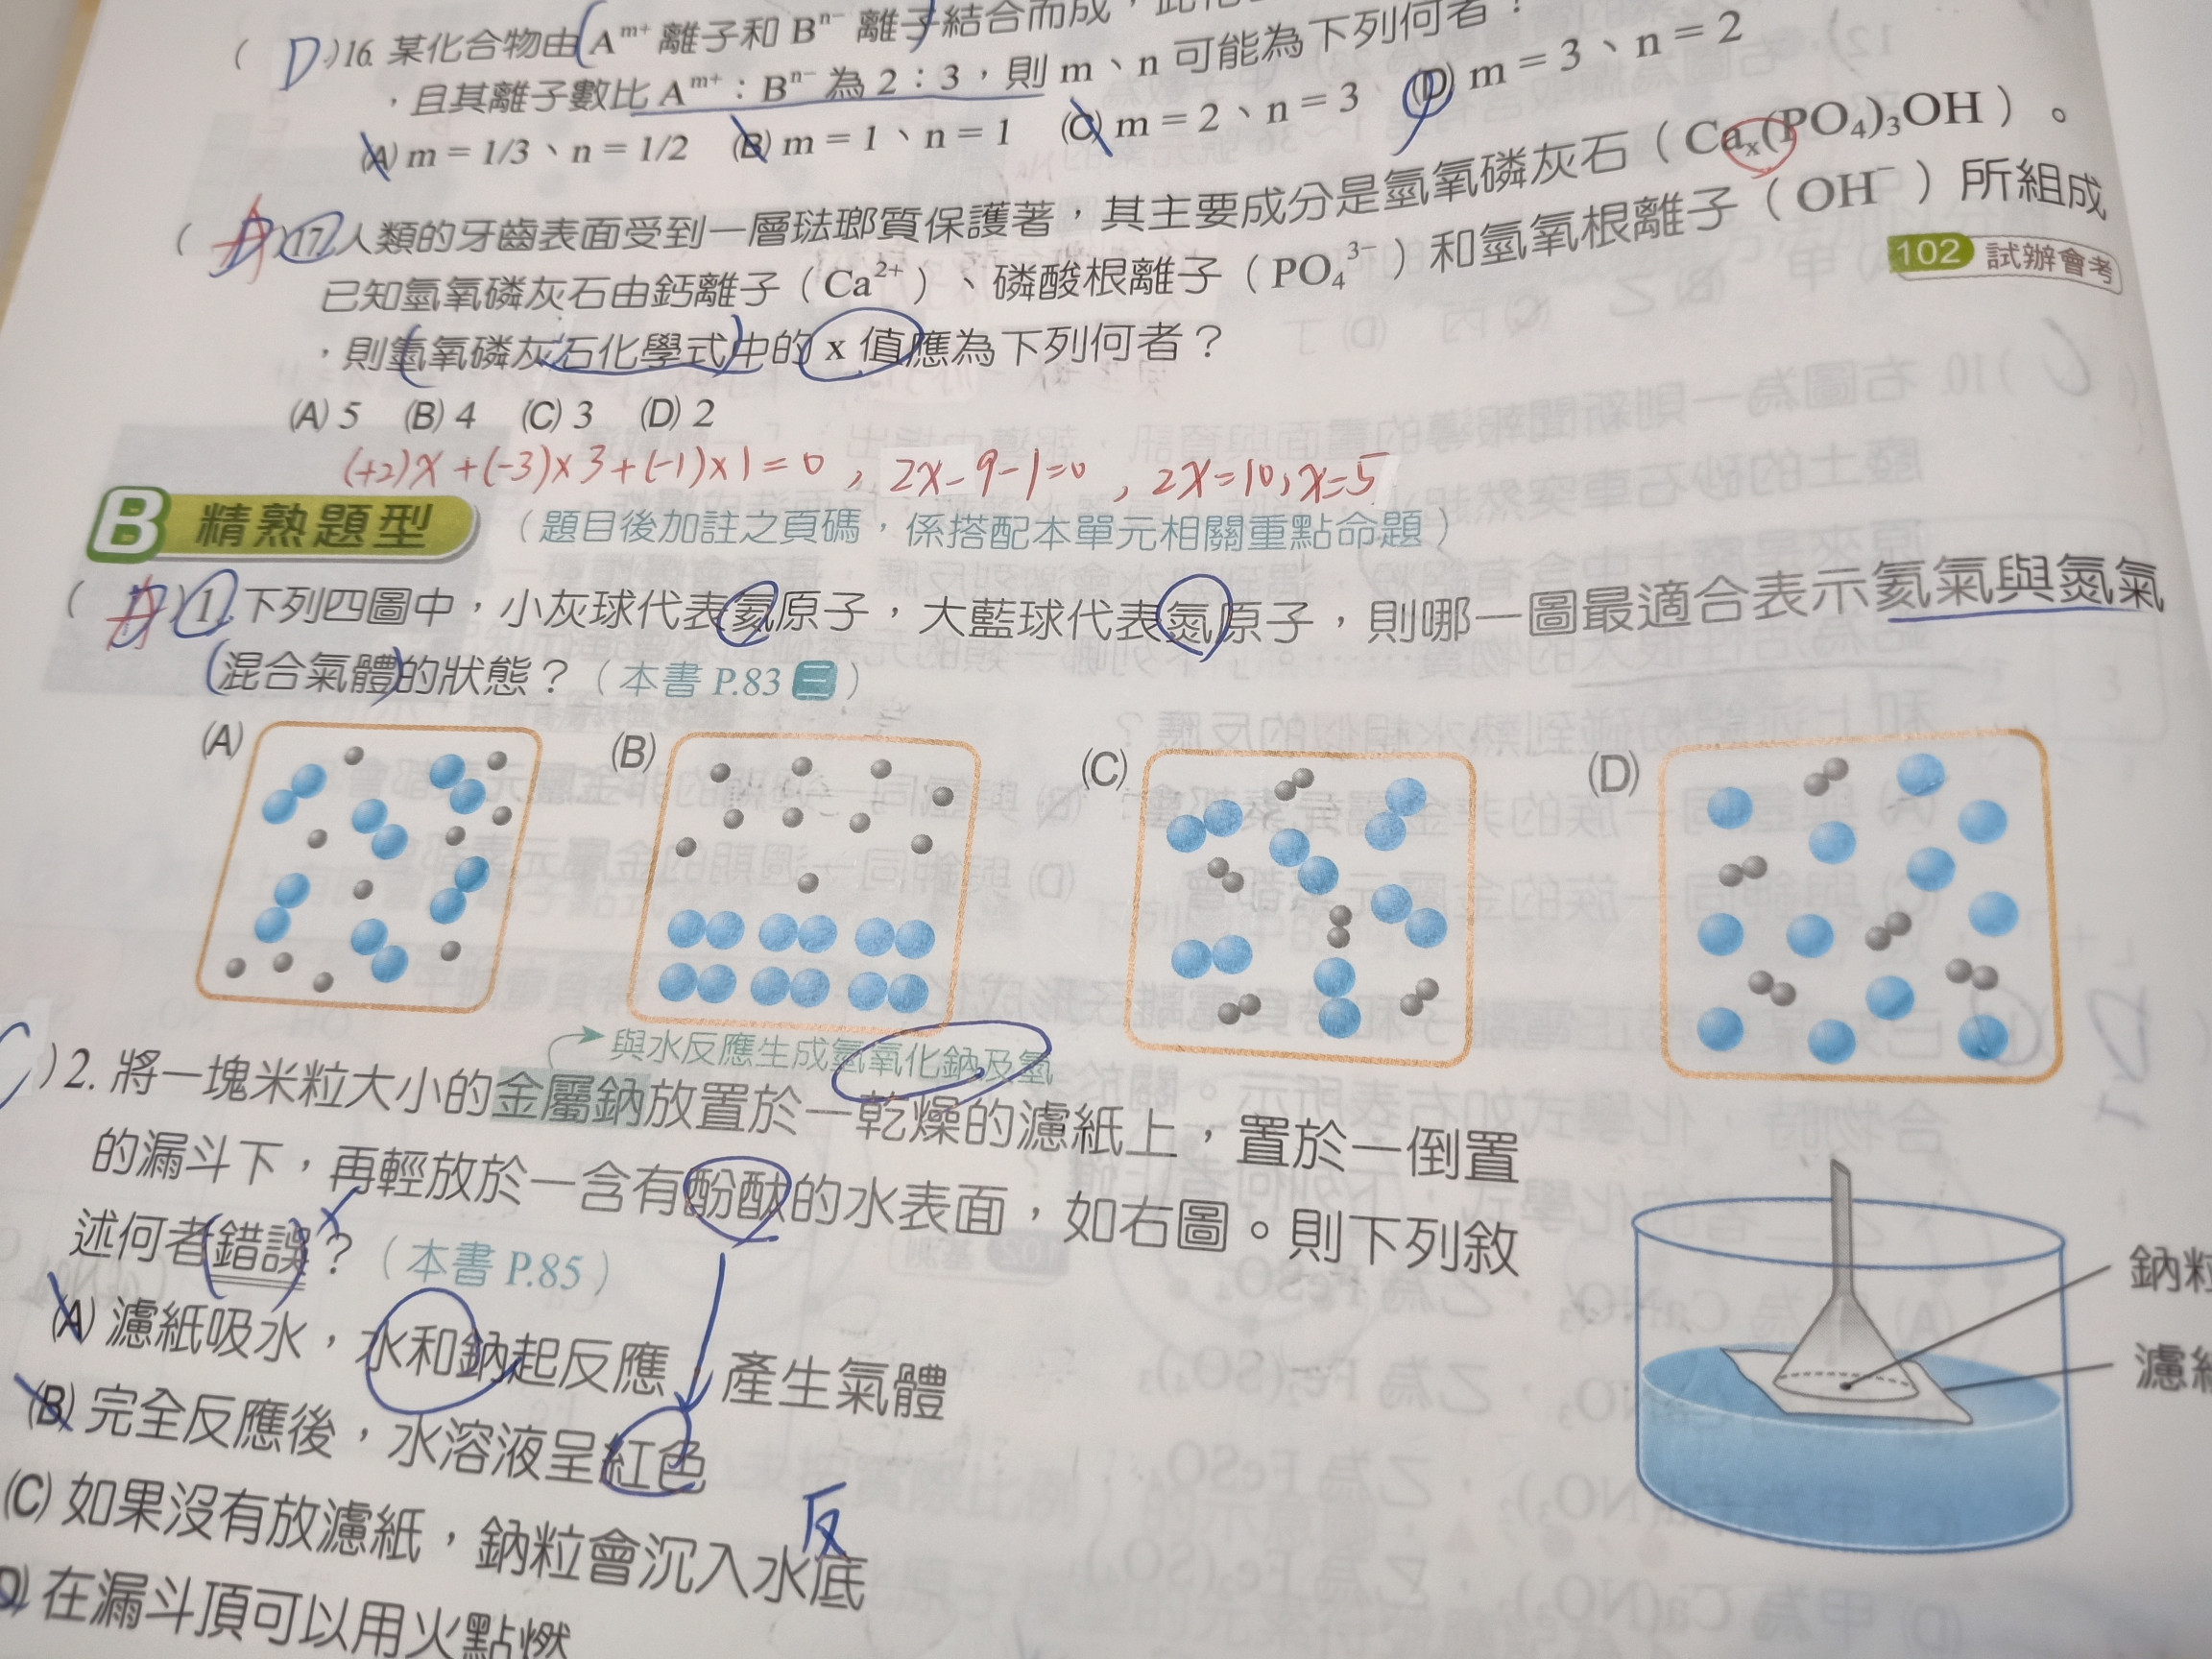 ( D )16. 某化合物由 Aᵐ⁺ 離子和 Bⁿ⁻ 離子結合而成，此化
，且其離子數比 Aᵐ⁺：Bⁿ⁻ 為 2：3，則 m、n 可能為下列何者？
(A) m = 1/3、n = 1/2 (B) m = 1、n = 1 (C) m = 2、n = 3 (D) m = 3、n = 2
( A )17. 人類的牙齒表面受到一層琺瑯質保護著，其主要成分是氫氧磷灰石（Caₓ(PO₄)₃OH）。
已知氫氧磷灰石由鈣離子（Ca²⁺）、磷酸根離子（PO₄³⁻）和氫氧根離子（OH⁻）所組成
，則氫氧磷灰石化學式中的 x 值應為下列何者？
102 試辦會考
(A) 5 (B) 4 (C) 3 (D) 2
(+2)x+(-3)x3+(-1)x1=0，2x-9-1=0，2x=10，x=5
B 精熟題型（題目後加註之頁碼，係搭配本單元相關重點命題）
( A )1. 下列四圖中，小灰球代表氦原子，大藍球代表氮原子，則哪一圖最適合表示氦氣與氮氣
混合氣體的狀態？（本書 P.83 二）
(A) (B) (C) (D)
與水反應生成氫氧化鈉及氫
C )2. 將一塊米粒大小的金屬鈉放置於一乾燥的濾紙上，置於一倒置
的漏斗下，再輕放於一含有酚酞的水表面，如右圖。則下列敘
述何者錯誤？（本書 P.85）
(A) 濾紙吸水，水和鈉起反應，產生氣體
(B) 完全反應後，水溶液呈紅色
反
(C) 如果沒有放濾紙，鈉粒會沉入水底
(D) 在漏斗頂可以用火點燃
鈉粒
濾紙